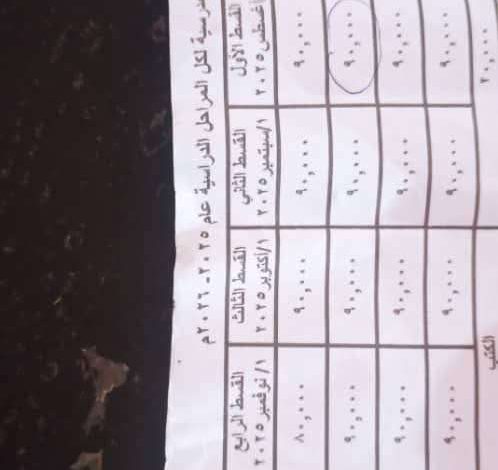 لكل المراحل الدراسية عام ٢٠٢٥-٢٠٢٦م
القسط الأول القسط الثاني القسط الثالث القسط الرابع
أغسطس ٢٠٢٥ ١/سبتمبر ٢٠٢٥ ١/أكتوبر ٢٠٢٥ ١/نوفمبر ٢٠٢٥
٩٠,٠٠٠ ٩٠,٠٠٠ ٩٠,٠٠٠ ٨٠,٠٠٠
٩٠,٠٠٠ ٩٠,٠٠٠ ٩٠,٠٠٠ ٩٠,٠٠٠
٩٠,٠٠٠ ٩٠,٠٠٠ ٩٠,٠٠٠ ٩٠,٠٠٠
٩٠,٠٠٠ ٩٠,٠٠٠ ٩٠,٠٠٠ ٩٠,٠٠٠
الكتب